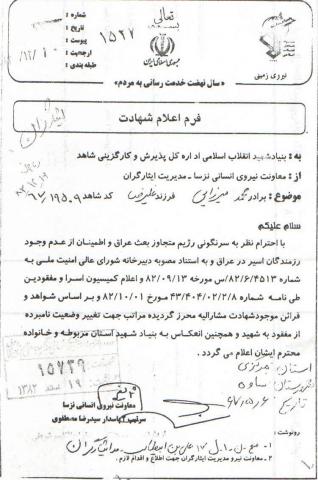 تعالی
شماره :
۱۵۲۷
تاریخ :
پیوست :
ارجحیت :
طبقه بندی :
جمهوری اسلامی ایران
نیروی زمینی
«سال نهضت خدمت رسانی به مردم»
فرم اعلام شهادت
به : بنیاد شهید انقلاب اسلامی اداره کل پذیرش و کارگزینی شاهد
از : معاونت نیروی انسانی نزسا - مدیریت ایثارگران
موضوع : برادر محمد میرزایی فرزند علیرضا کد شاهد
سلام علیکم
با احترام نظر به سرنگونی رژیم متجاوز بعث عراق و اطمینان از عدم وجود
رزمندگان اسیر در عراق و به استناد مصوبه دبیرخانه شورای عالی امنیت ملی به
شماره ۸۲/۶/۴۵۱۳/س مورخه ۸۲/۰۹/۱۳ و اعلام کمیسیون اسرا و مفقودین
طی نامه شماره ۴۳/۴۰۴/۰۲/۲/۸ مورخ ۸۲/۱۰/۰۱ و بر اساس شواهد و
قرائن موجود شهادت مشارالیه محرز گردیده مراتب جهت تغییر وضعیت نامبرده
از مفقود به شهید و همچنین انعکاس به بنیاد شهید استان مربوطه و خانواده
محترم ایشان اعلام می گردد .
استان مرکزی
شهرستان ساوه
تاریخ
۱۵۷۳۹
۱۹ اسفند ۱۳۸۲
معاونت نیروی انسانی نزسا
سرتیپ ۲ پاسدار سیدرضا مصطفوی
رونوشت :
۲ - معاونت نیرو مدیریت ایثارگران جهت اطلاع و اقدام لازم .